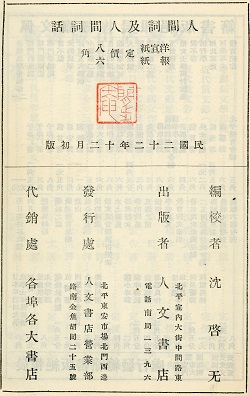 人間詞及人間詞話
洋宣紙 定價 八角
報紙 六
民國二十二年十二月初版
編校者 沈啓无
出版者 人文書店
北平宣內大街中間路東
電話南局一三九六
發行處 人文書店營業部
北平東安市場北門西邊
路南金魚胡同二十五號
代銷處 各埠各大書店